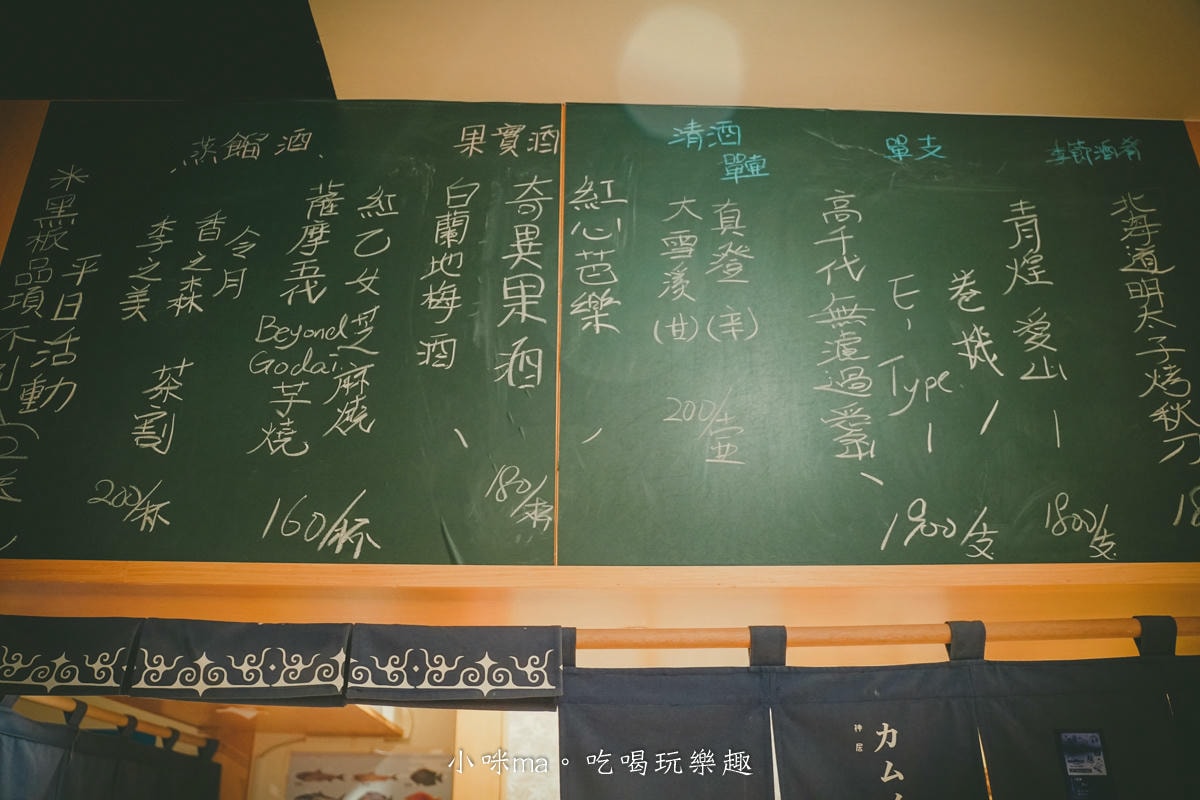 季節酒肴
北海道明太子烤秋刀
18
單支
青煌 愛山
1800/支
卷機
E, Type.
高千代 無濾過
1900/支
清酒
單壺
真澄(辛)
大雪溪(甘)
200/壺
紅心芭樂
果實酒
奇異果酒
白蘭地梅酒
180/杯
蒸餾酒
紅乙女 芝麻燒
薩摩吾代
Beyond
Godai
芋燒
160/杯
令月
香之森
李之美
茶割
200/杯
平日活動
黑板品項不
カム
神居
小咪ma。吃喝玩樂趣